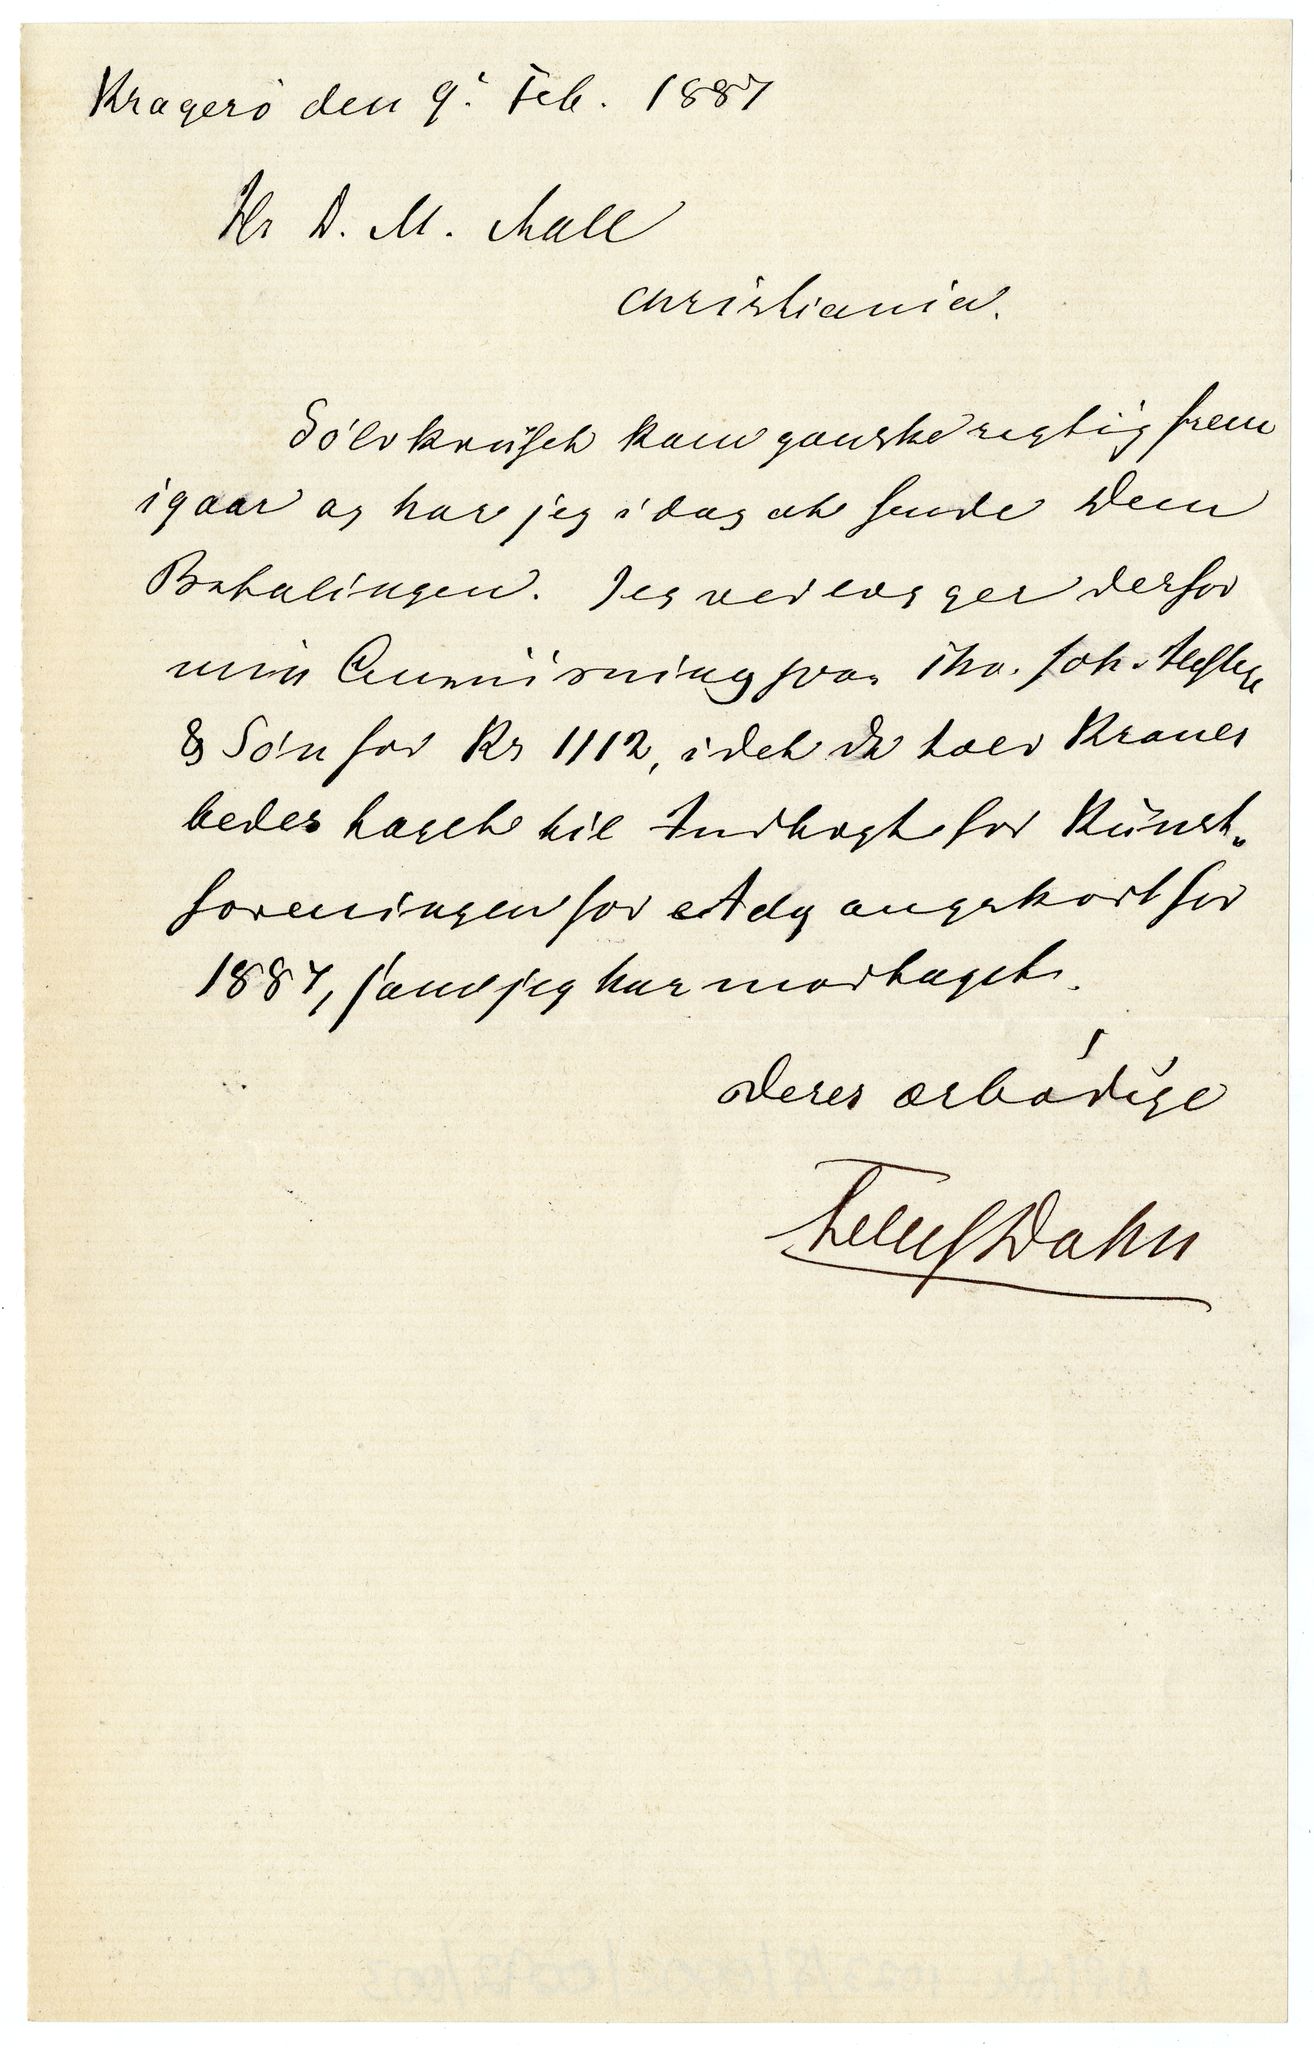 Kragerö den 9' Feb. 1887
Hr D. M. Aall
Christiania.
Sölvkruset kom ganske rigtig frem
igaar og har jeg idag at sende Dem
Betalingen. Jeg vedlægger derfor
min Anvisning paa Tho. Joh. Heftye
& Sön for Kr 1112, idet de tolv Kroner
bedes taget til Indtægt for Kunst-
foreningen for Adgangskort for
1887, som jeg har modtaget.
Deres ærbödige
Dahn